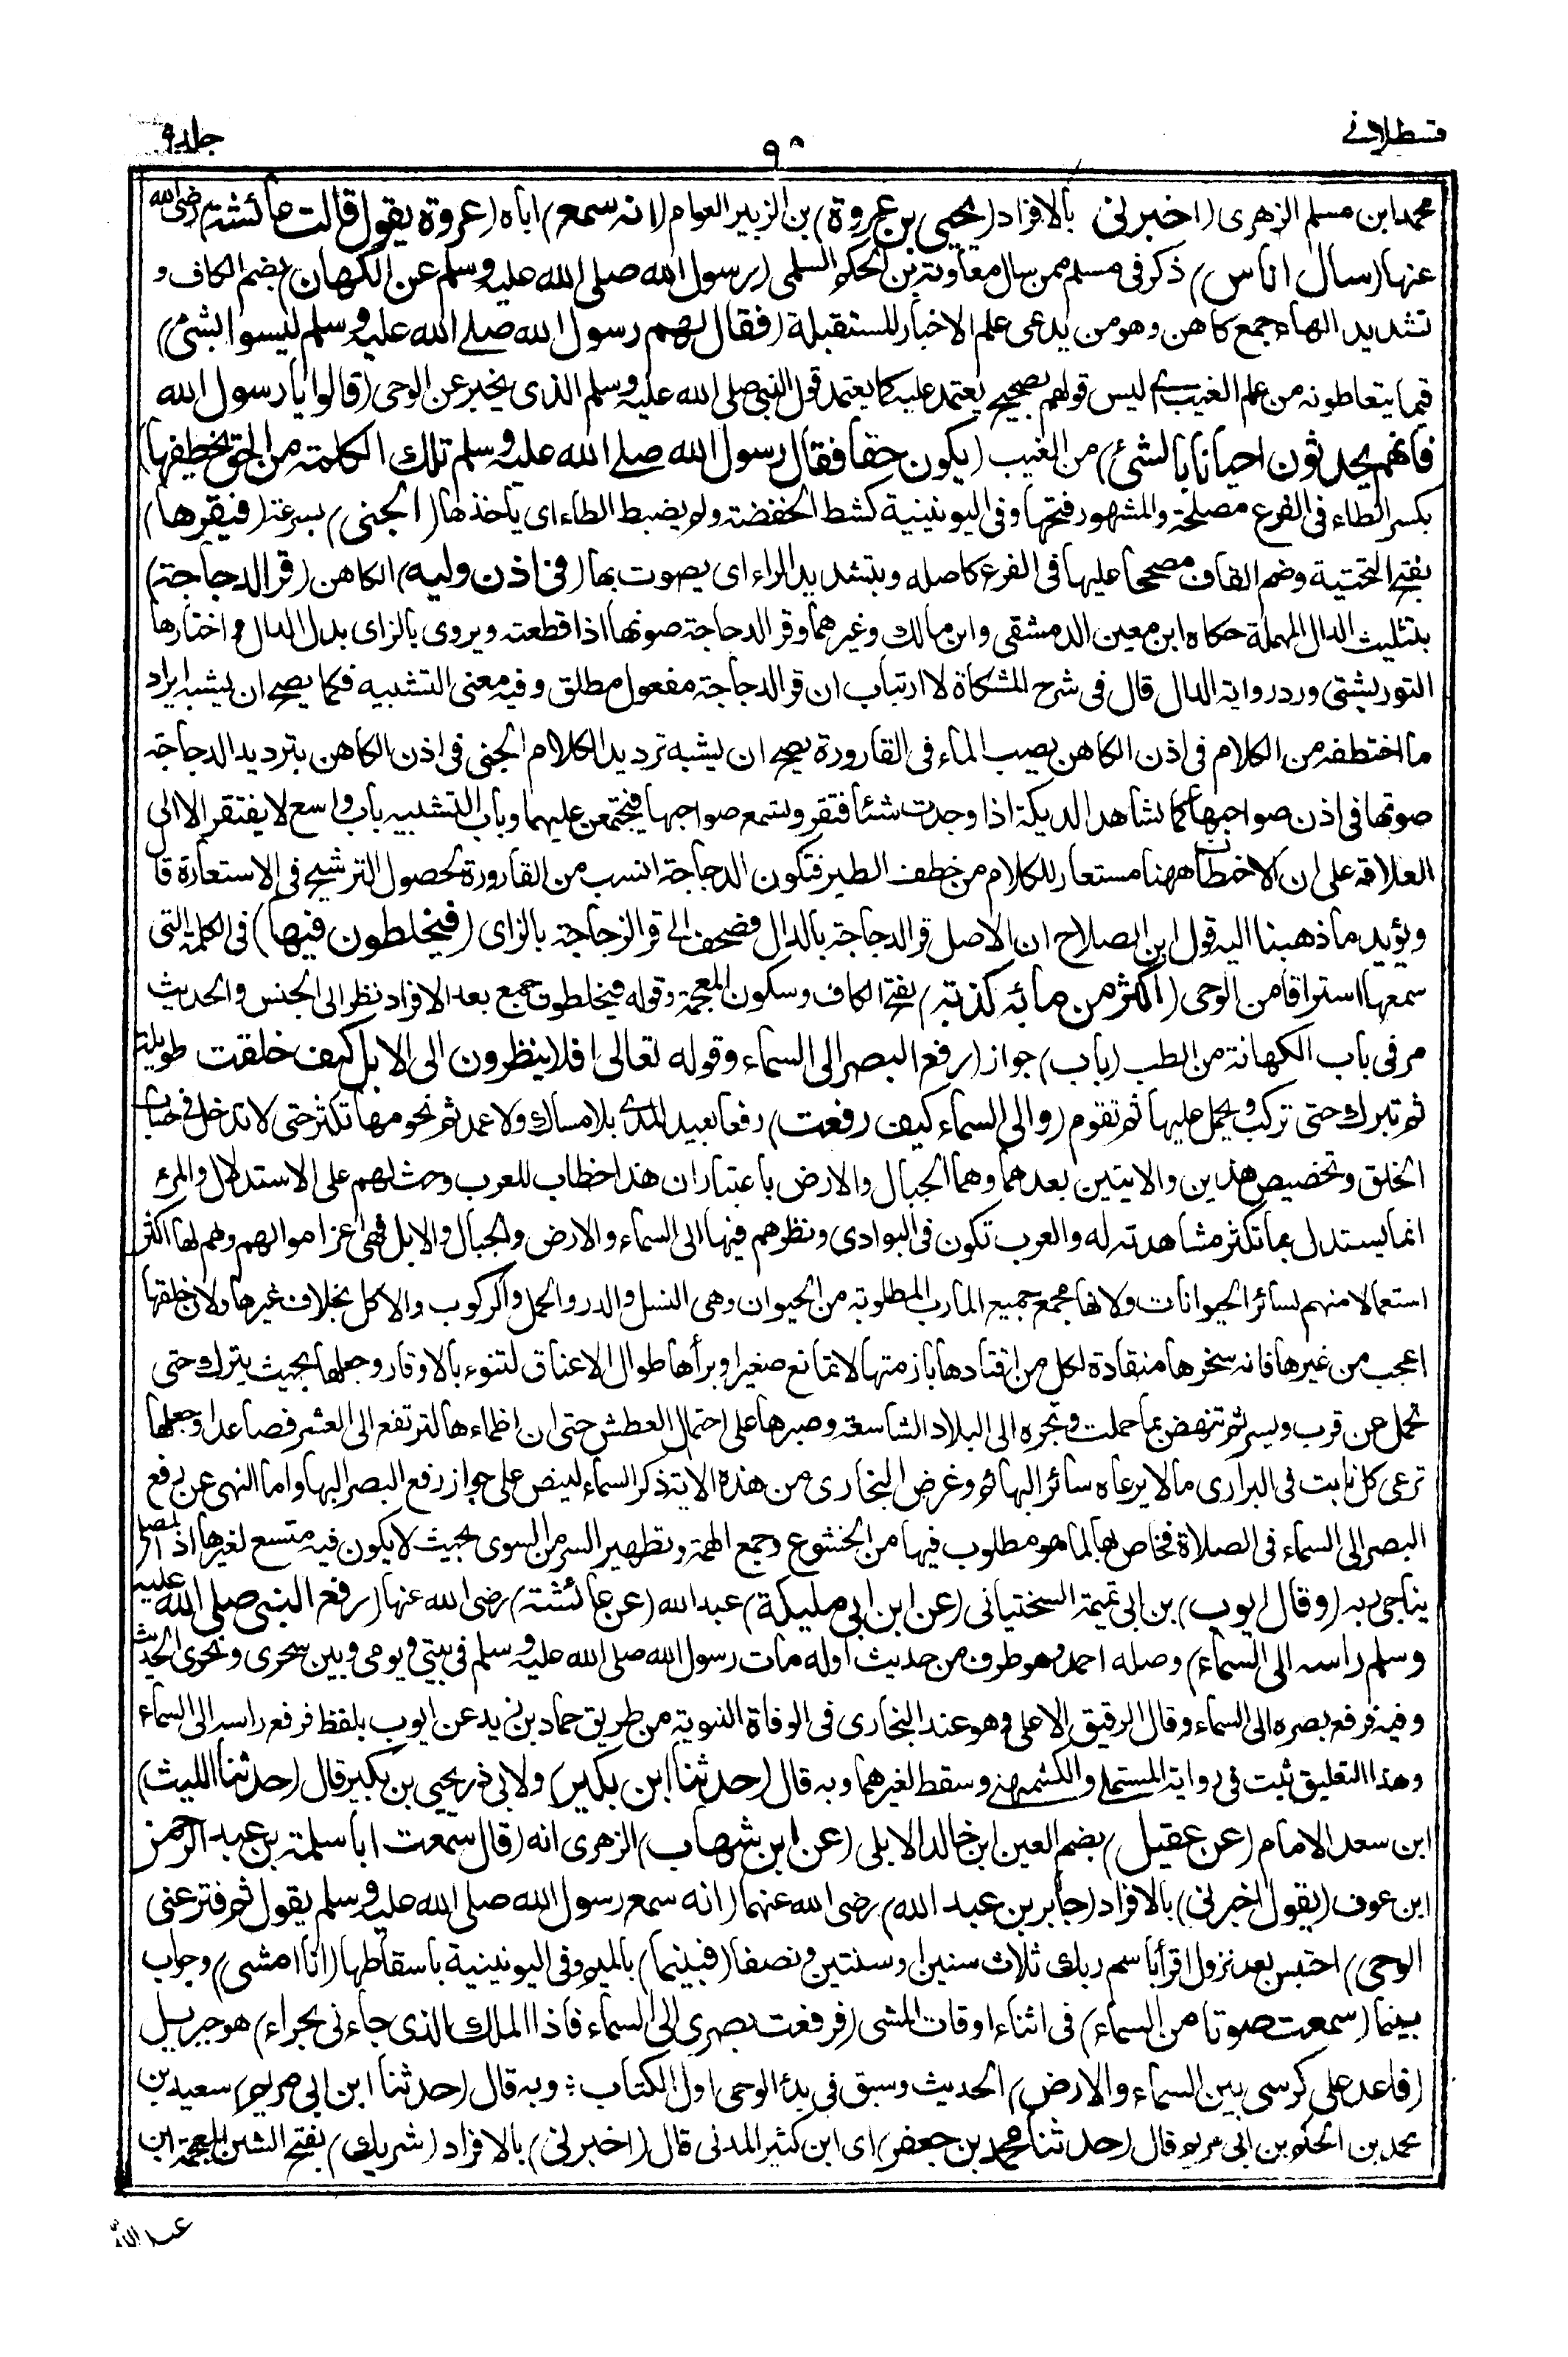 قسطلانی
٩٨
جلد ٩
محمد ابن مسلم الزهری (اخبرنی) بالافراد (یحیی بن عروة) بن الزبیر العوام (انه سمع) اباه (عروة یقول قالت عائشة) رضی الله
عنها (سال اناس) ذکر فی مسلم ممن سال معاویة بن الحکم السلمی (رسول الله صلی الله علیه وسلم عن الکهان) بضم الکاف و
تشدید الهاء جمع کاهن وهو من یدعی علم الاخبار المستقبلة (فقال لهم رسول الله صلی الله علیه وسلم لیسوا بشئ)
فیما یتعاطونه من علم الغیب ای لیس قولهم بصحیح یعتمد علیه کما یعتمد قول النبی صلی الله علیه وسلم الذی یخبر عن الوحی (قالوا یا رسول الله
فانهم یحدثون احیانا بالشئ) من الغیب (یکون حقا فقال رسول الله صلی الله علیه وسلم تلک الکلمة من الحق یخطفها)
بکسر الطاء فی الفرع مصلحة والمشهور فتحها وفی الیونینیة کشط الخفضة ولم یضبط الطاء ای یاخذها (الجنی) بسرعة (فیقرها)
بفتح التحتیة وضم القاف مصححا علیها فی الفرع کاصله وبتشدید الراء ای یصوت بها (فی اذن ولیه) الکاهن (قر الدجاجة)
بتثلیث الدال المهملة حکاه ابن معین الدمشقی وابن مالک وغیرهما وقر الدجاجة صوتها اذا قطعته ویروی بالزای بدل الدال واختارها
التوربشتی ورد روایة الدال قال فی شرح المشکاة لا ارتیاب ان قر الدجاجة مفعول مطلق وفیه معنی التشبیه فکما یصح ان یشبه ایراد
ما اختطفه من الکلام فی اذن الکاهن بصب الماء فی القارورة یصح ان یشبه تردید الکلام الجنی فی اذن الکاهن بتردید الدجاجة
صوتها فی اذن صواحبها کما تشاهد الدیکة اذا وجدت شئا فتقر وتسمع صواحبها فیجتمعن علیهما وباب التشبیه باب واسع لا یفتقر الا الی
العلاقة علی ان الاختطاف ههنا مستعار للکلام من خطف الطیر فتکون الدجاجة انسب من القارورة لحصول الترشیح فی الاستعارة قا
ویؤید ما ذهبنا الیه قول ابن الصلاح ان الاصل قر الدجاجة بالدال فصحف الی قر الزجاجة بالزای (فیخلطون فیها) فی الکلمة التی
سمعها استراقا من الوحی (اکثر من مائة کذبة) بفتح الکاف وسکون المعجمة وقوله فیخلطون جمع بعد الافراد نظرا الی الجنس والحدیث
مر فی باب الکهانة من الطب (باب) جواز (رفع البصر الی السماء وقوله تعالی افلا ینظرون الی الابل کیف خلقت) طویلة
ثم تبرک حتی ترکب ویحمل علیها ثم تقوم (والی السماء کیف رفعت) رفعا بعید المدی بلا مساک ولا عمد ثم نجومها تکثر حتی لا تدخل فی حساب
الخلق وتخصیص هذین والایتین بعدهما وهما الجبال والارض باعتبار ان هذا خطاب للعرب وحث لهم علی الاستدلال والمرء
انما یستدل بما تکثر مشاهدته له والعرب تکون فی البوادی ونظرهم فیها الی السماء والارض والجبال والابل فهی اعز اموالهم وهم لها اکثر
استعمالا منهم لسائر الحیوانات ولانها مجمع جمیع المارب المطلوبة من الحیوان وهی النسل والدر والحمل والرکوب والاکل بخلاف غیرها ولان خلقها
اعجب من غیرها فانه سخرها منقادة لکل من اقتادها بازمتها لا تمانع صغیرا وبرأها طوال الاعناق لتنوء بالاوقار وجعلها بحیث یترک حتی
تحمل عن قرب ویسر ثم تنهض بما حملت وتجره الی البلاد الشاسعة وصبرها علی احتمال العطش حتی ان اظماءها لترتفع الی العشر فصاعدا وجعلها
ترعی کل نابت فی البراری مالا یرعاه سائر البهائم وغرض البخاری من هذه الایة ذکر السماء لینص علی جواز رفع البصر الیها واما النهی عن رفع
البصر الی السماء فی الصلاة فخاص بها لما هو مطلوب فیها من الخشوع وجمع الهمة وتطهیر السر من السوی بحیث لا یکون فیه متسع لغیرها اذ المصلی
یناجی ربه (وقال ایوب) بن ابی تمیمة السختیانی (عن ابن ابی ملیکة) عبد الله (عن عائشة) رضی الله عنها (رفع النبی صلی الله علیه
وسلم راسه الی السماء) وصله احمد وهو طرف من حدیث اوله مات رسول الله صلی الله علیه وسلم فی بیتی ویومی وبین سحری ونحری الحدیث
وفیه فرفع بصره الی السماء وقال الرفیق الاعلی وهو عند البخاری فی الوفاة النبویة من طریق حماد بن زید عن ایوب بلفظ فرفع راسه الی السماء
وهذا التعلیق ثبت فی روایة المستملی والکشمیهنی وسقط لغیرهما وبه قال (حدثنا ابن بکیر) ولابی ذر یحیی بن بکیر قال (حدثنا اللیث)
ابن سعد الامام (عن عقیل) بضم العین ابن خالد الایلی (عن ابن شهاب) الزهری انه (قال سمعت ابا سلمة بن عبد الرحمن)
ابن عوف (یقول اخبرنی) بالافراد (جابر بن عبد الله) رضی الله عنهما (انه سمع رسول الله صلی الله علیه وسلم یقول ثم فتر عنی
الوحی) احتبس بعد نزول اقرأ باسم ربک ثلاث سنین او سنتین ونصفا (فبینما) بالمیم وفی الیونینیة باسقاطها (انا امشی) وجواب
بینما (سمعت صوتا من السماء) فی اثناء اوقات المشی (فرفعت بصری الی السماء فاذا الملک الذی جاءنی بحراء) هو جبریل
(قاعد علی کرسی بین السماء والارض) الحدیث وسبق فی بدء الوحی اول الکتاب : وبه قال (حدثنا ابن ابی مریم) سعید بن
محمد بن الحکم بن ابی مریم قال (حدثنا محمد بن جعفر) ای ابن کثیر المدنی قال (اخبرنی) بالافراد (شریک) بفتح الشین المعجمة ابن
عبد الله